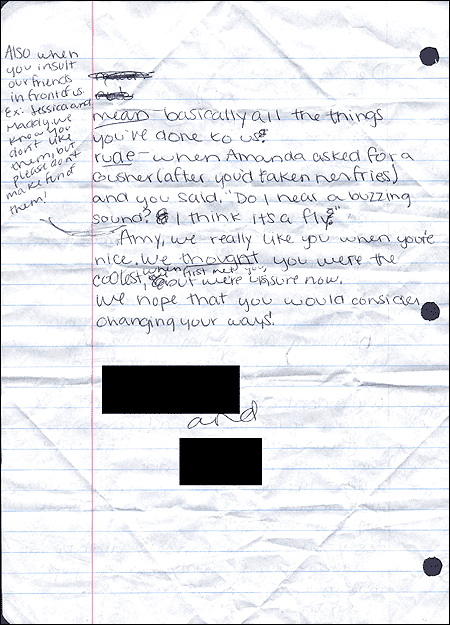 Also when
you insult
our friends
in front of us.
Ex: Jessica and
Maddy. we
know you
don't like
them, but
please don't
make fun of
them!
mean- basically all the things
you've done to us!
rude- when Amanda asked for a
Gusher (after you'd taken her fries)
and you said. "Do I hear a buzzing
sound? I think its a fly."
Amy, we really like you when you're
nice. We thought you were the
coolest, when first met you,
but were unsure now.
We hope that you would consider
changing your ways.
and